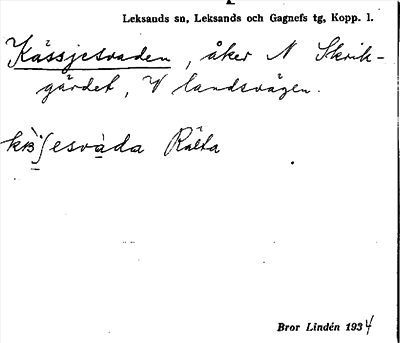 Leksands sn, Leksands och Gagnefs tg, Kopp. l.
Kässjesvaden, åker N Skrik-
gärdet, V landsvägen.
Rälta
Bror Lindén 1934